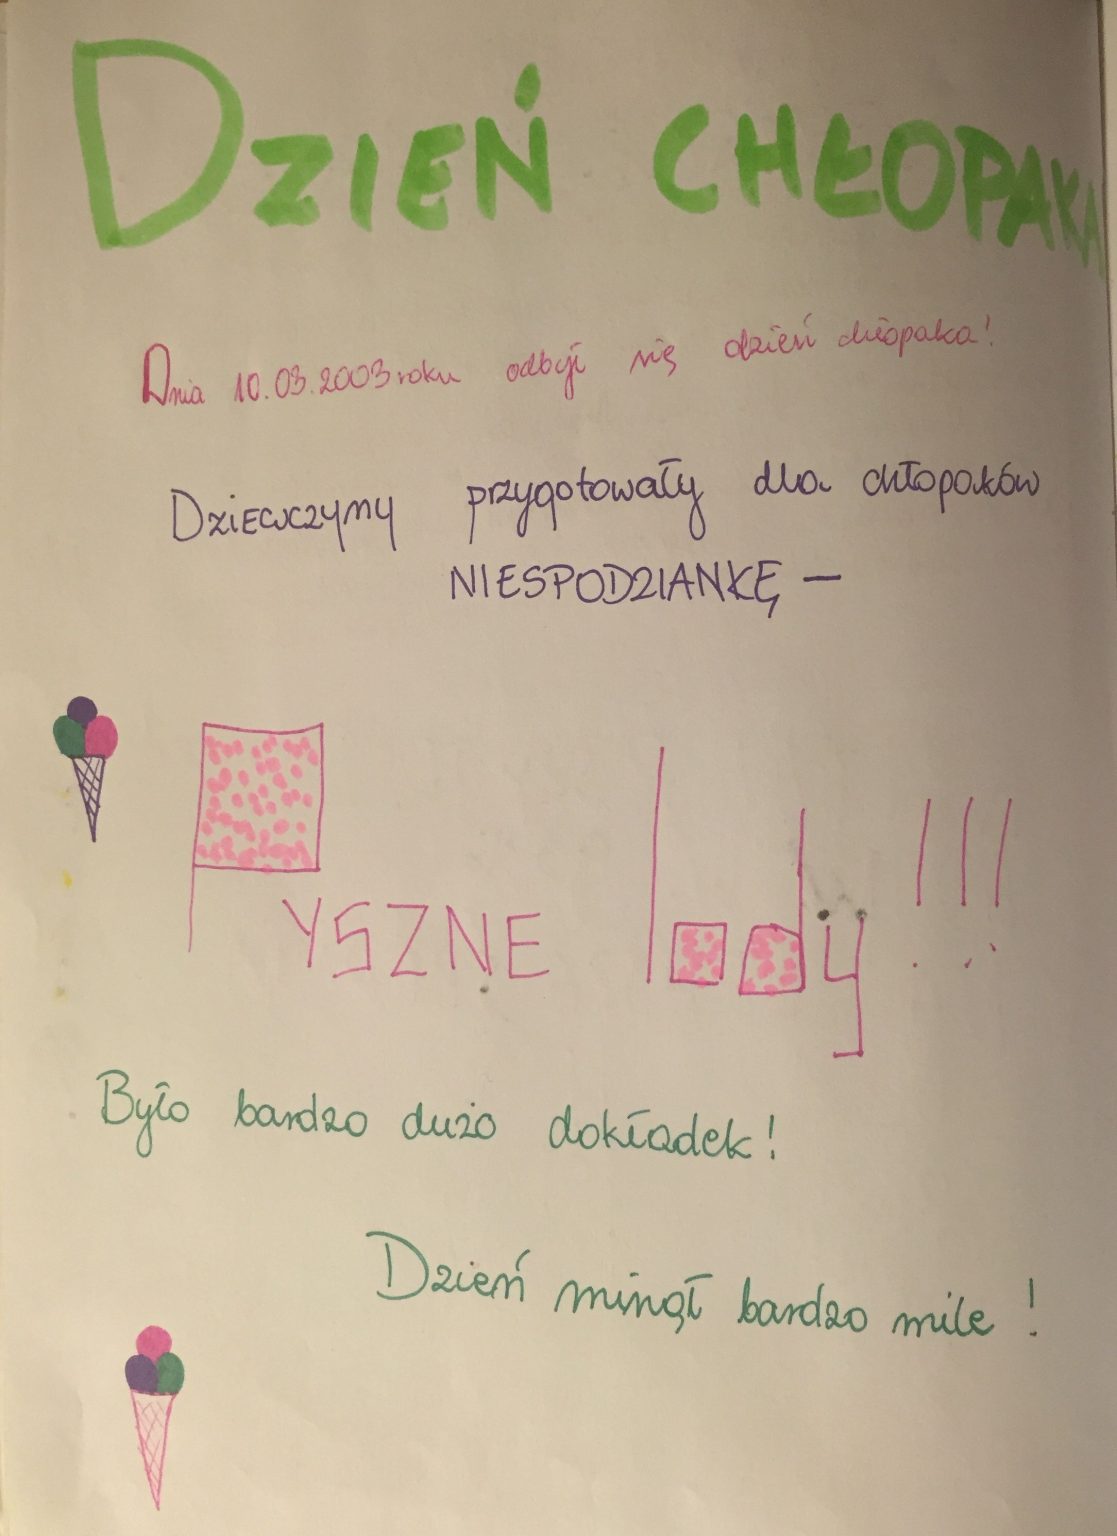 DZIEŃ CHŁOPAKA
Dnia 10.03.2003 roku odbył się dzień chłopaka!
Dziewczyny przygotowały dla chłopaków
NIESPODZIANKĘ —
PYSZNE lody!!!
Było bardzo dużo dokładek!
Dzień minął bardzo mile!